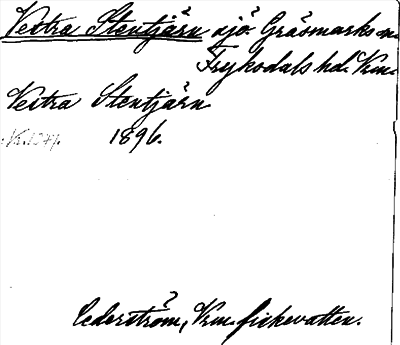 Vestra Stentjärn sjö. Gräsmarks sn.
Fryksdals hd. Vrm.
Vestra Stentjärn
1896.
Cederström, Vrm. fiskevatten.